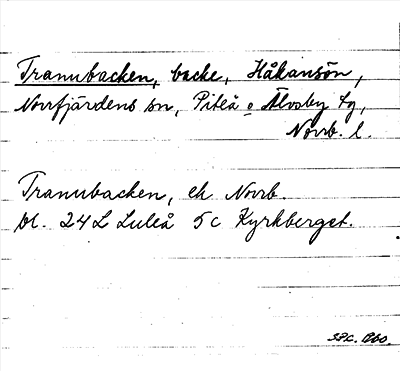 Tranubacken, backe, Håkansön,
Norrfjärdens sn, Piteå o Älvsby tg,
Norrb. l.
Tranubacken, ek Norrb.
bl. 24L Luleå 5c Kyrkberget.
1960.